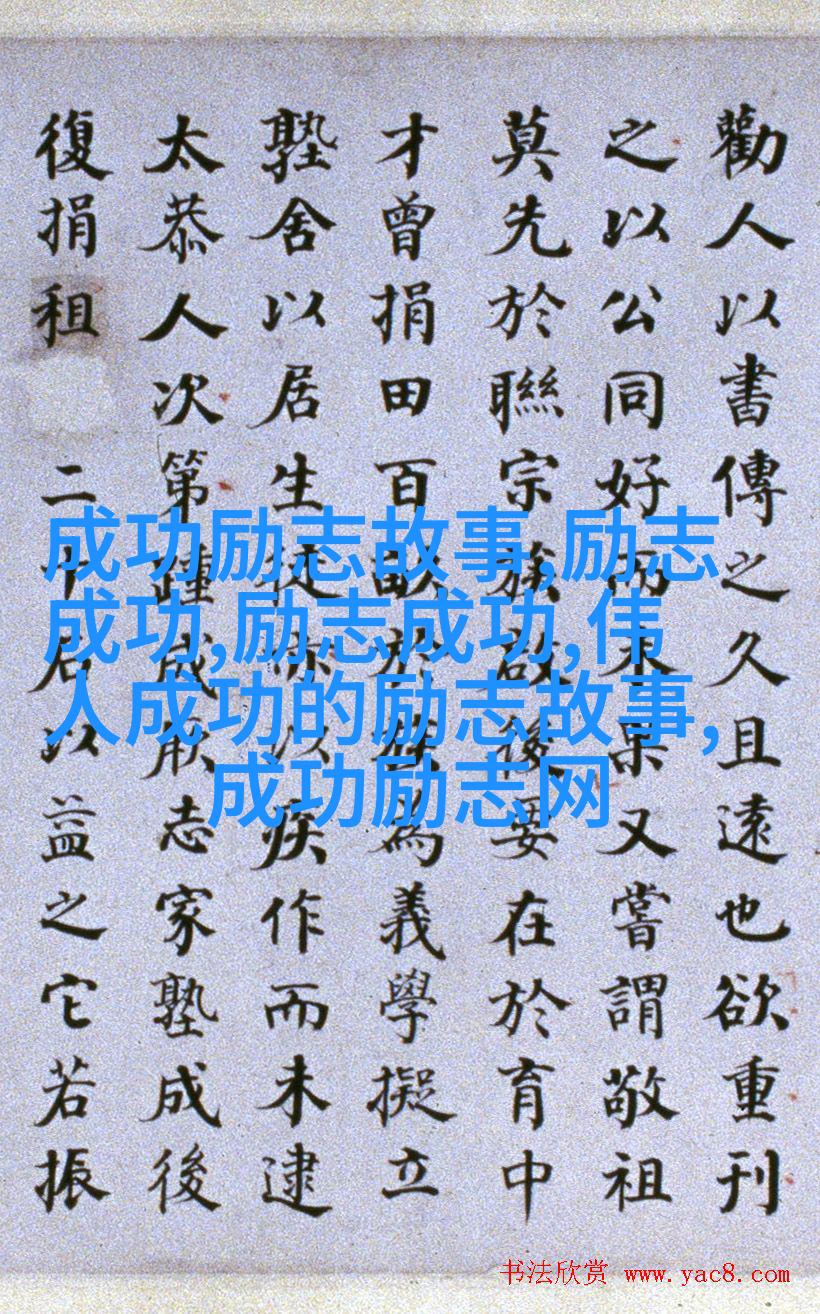 勸人以書傳之久且遠也欲重刊
之以公同好而未果又嘗謂敬祖
莫先於聯宗族啟後要在於育中
才曾捐田百畝於族為義學擬立
塾舍以居生徒亦以疾作而未逮
太恭人次第踵成厥志家塾成後
復捐租二十石以益之它若振
成功励志故事,励志
成功,励志成功,伟
人成功的励志故事,
成功励志网
书法欣赏 www.yac8.com